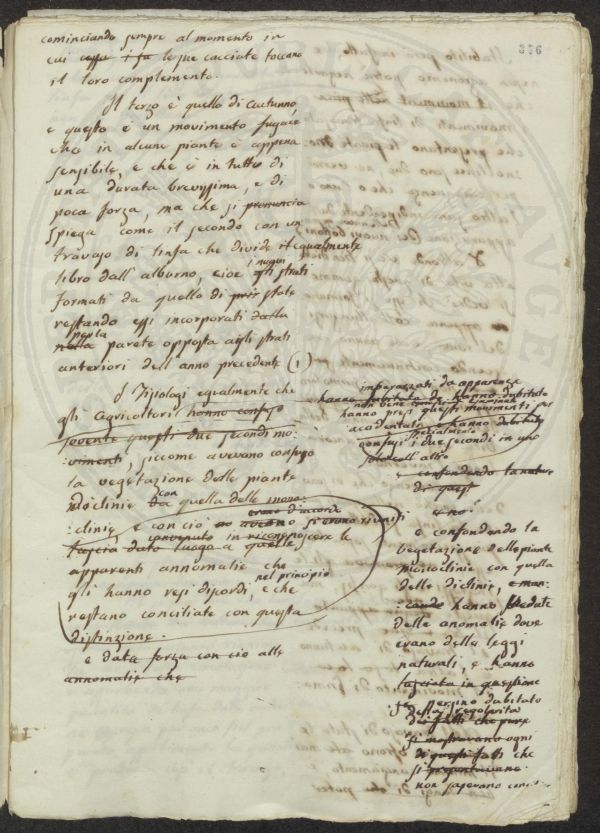 336
cominciando sempre al momento in
cui cessa i fa le sue cacciate toccano
il loro complemento.
Il terzo è quello di Cautunno,
e questo è un movimento fugace
che in alcune piante è appena
sensibile, e che è in tutto di
una durata brevissima, e di
poca forza, ma che si pronuncia
spiega come il secondo con un
travajo di linfa che divide egualmente
libro dall'alburno, cioe gli strati
i nuovi
formati da quello di state
restando essi incorporati dalla
nella parete opposta agli strati
anteriori dell'anno precedente (1)
I Fisiologi egualmente che
gli Agricoltori hanno confuso
sovente questi due secondi mo-
:vimenti, siccome avevano confuso
la vegetazione delle piante
da quella delle mono-
con
:clinie, e con ciò si erano riuniti
erano d'accordo
convenuto in riconoscere le
lascia dato luogo a quelle
apparenti annomalie che
gli hanno resi discordi, e che
nel principio
restano conciliate con questa
distinzione.
e data forza con cio alle
annomalie che
imperazzati da apparenze
hanno dubitato
hanno presi questi movimenti per
accidentali, e hanno dubitato
confusi i due secondi in uno
coll'altro
e confondendo la natura
di questi
e no?
e confondendo la
vegetazione delle piante
monoclinie con quella
delle diclinie, e man-
:cando hanno vedute
delle anomalie dove
erano delle leggi
naturali, e hanno
lasciata in questione
persino dubitato
della regolarità
dei fatti che pure
si mostravano ogni
di questi fatti che
si presentavano
non sapevano